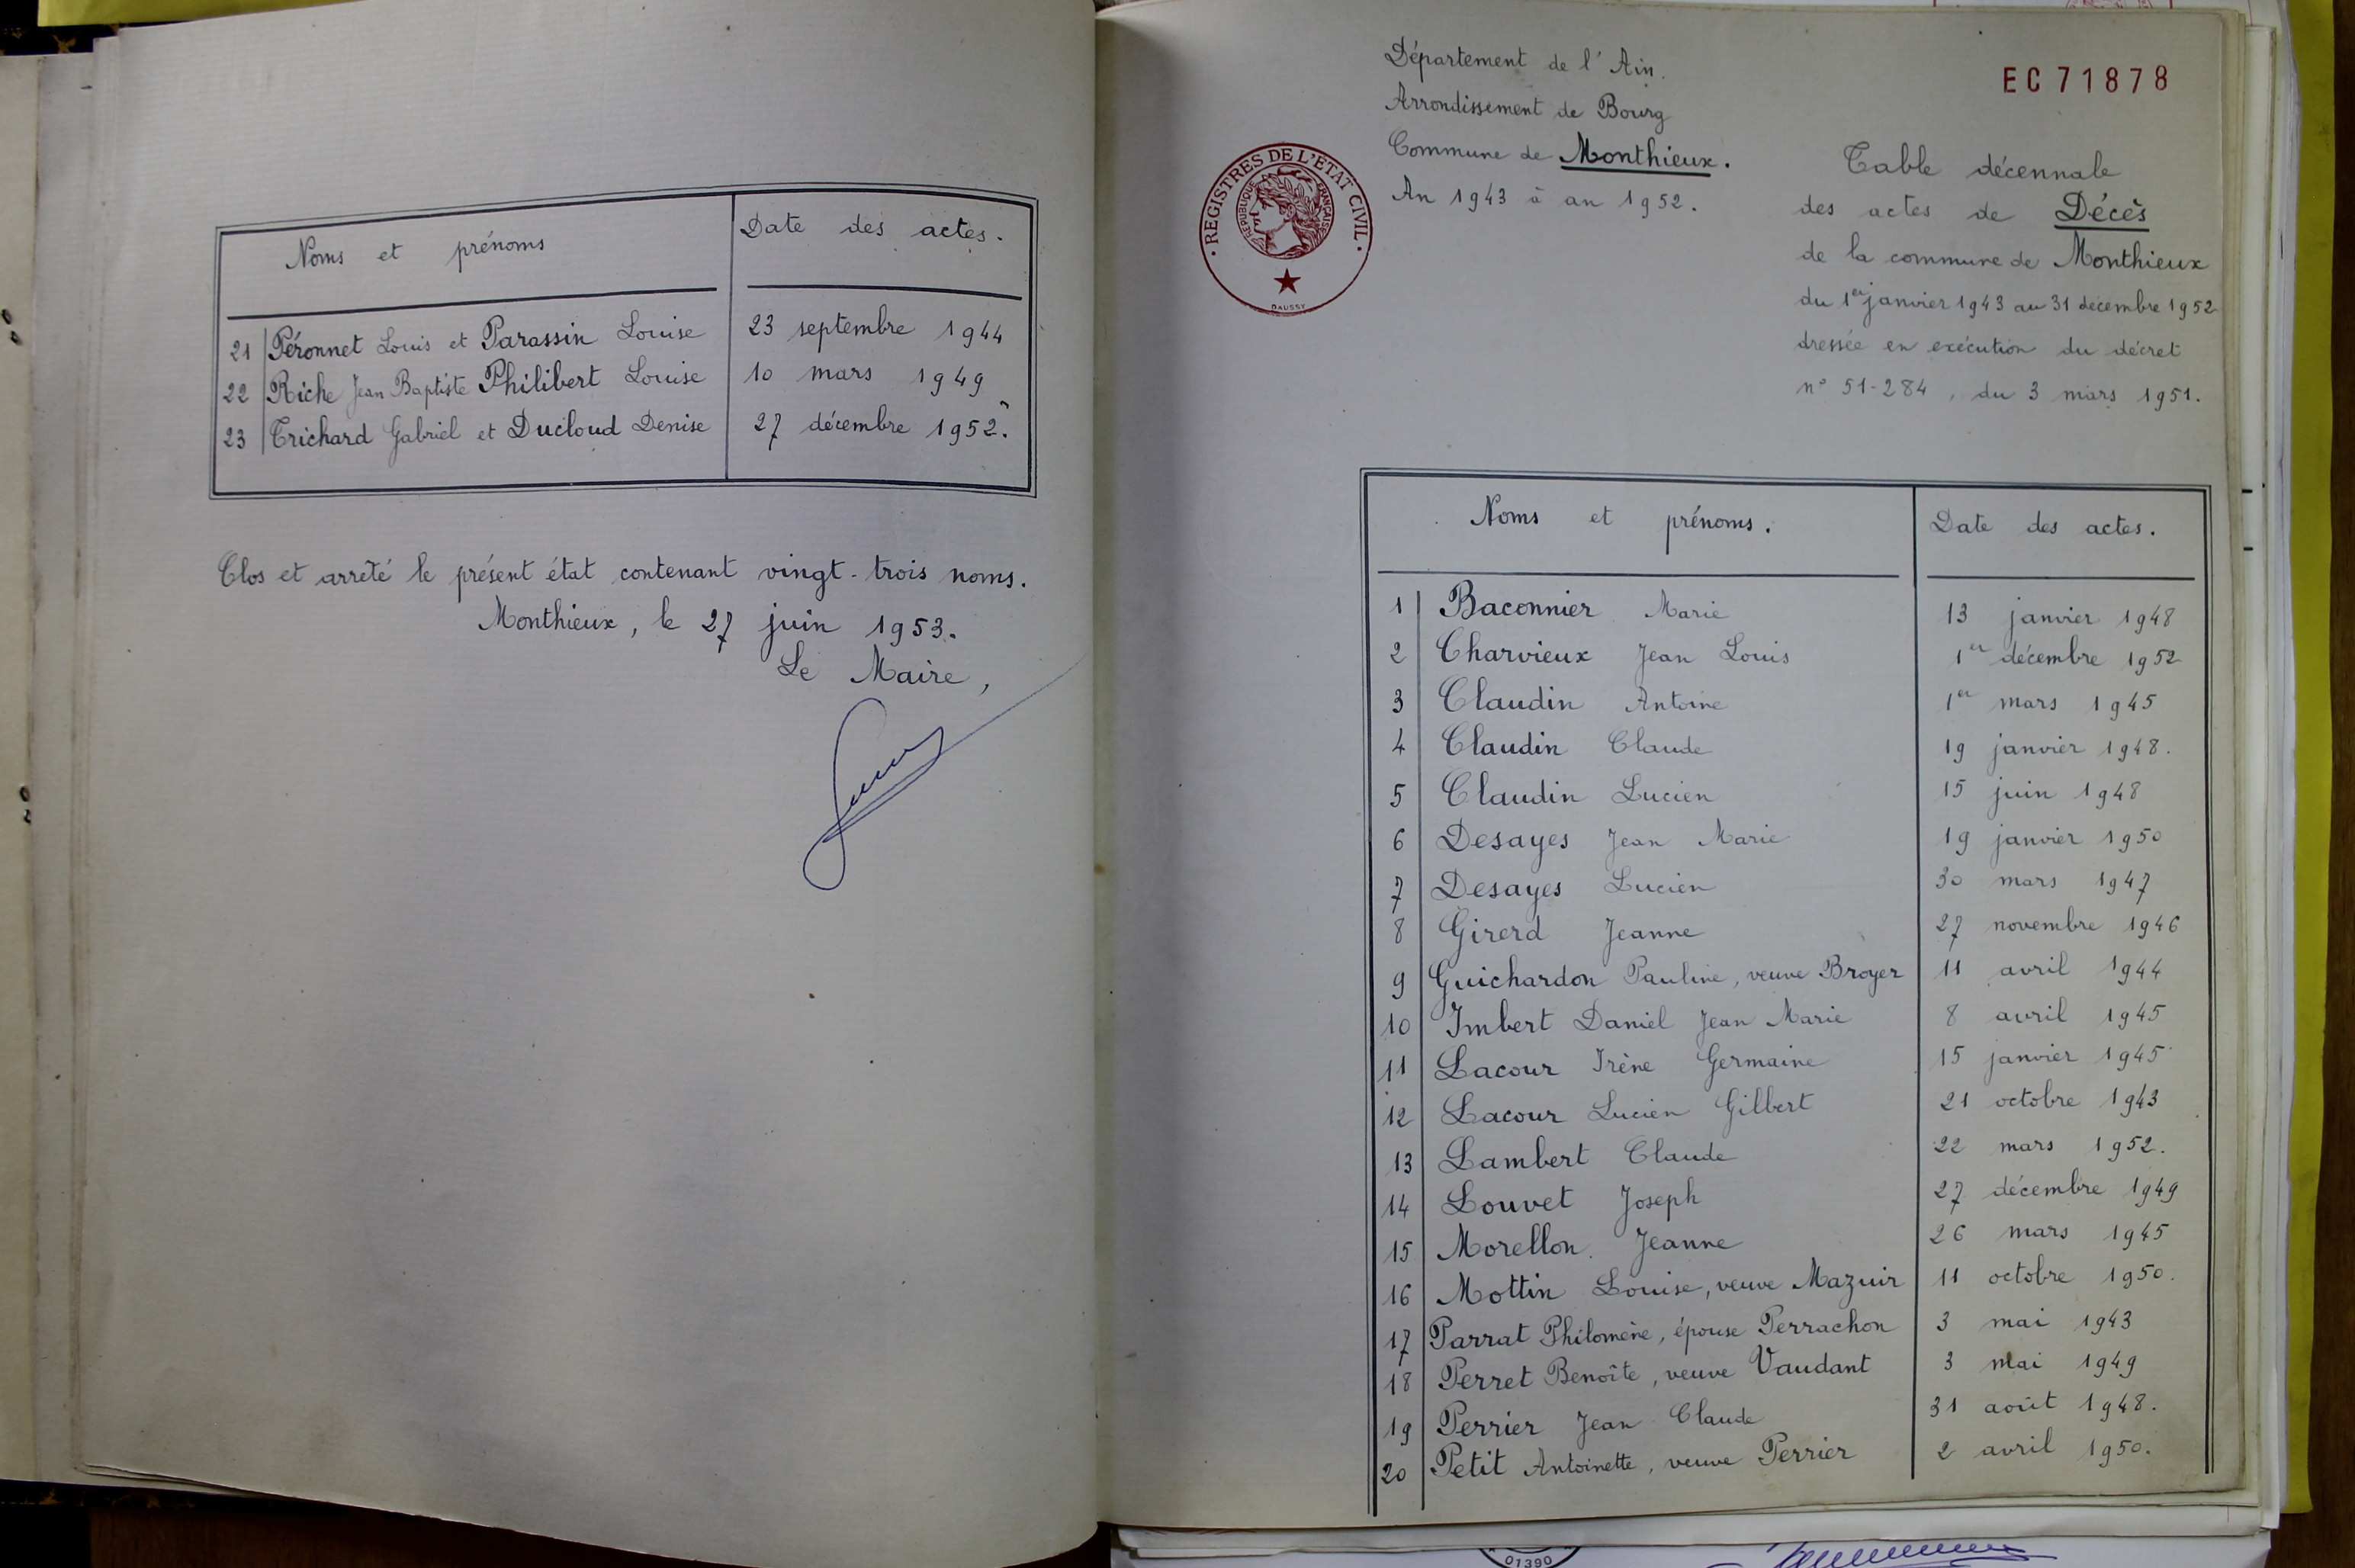 Noms et prénoms
Date des actes.
21 Péronnet Louis et Parassin Louise 23 septembre 1944
22 Riche Jean Baptiste Philibert Louise 10 mars 1949
23 Trichard Gabriel et Ducloud Denise 27 décembre 1952.
Clos et arrêté le présent état contenant vingt-trois noms.
Monthieux, le 27 juin 1953.
Le Maire,
Département de l'Ain.
Arrondissement de Bourg
Commune de Monthieux.
An 1943 à an 1952.
EC 71878
· REGISTRES DE L'ETAT CIVIL ·
REPUBLIQUE FRANÇAISE
DAUSSY
Table décennale
des actes de Décès
de la commune de Monthieux
du 1er janvier 1943 au 31 décembre 1952
dressée en exécution du décret
n° 51-284, du 3 mars 1951.
Noms et prénoms.
Date des actes.
1 Baconnier Marie 13 janvier 1948
2 Charvieux Jean Louis 1er décembre 1952
3 Claudin Antoine 1er mars 1945
4 Claudin Claude 19 janvier 1948.
5 Claudin Lucien 15 juin 1948
6 Desayes Jean Marie 19 janvier 1950
7 Desayes Lucien 30 mars 1947
8 Girerd Jeanne 27 novembre 1946
9 Guichardon Pauline, veuve Broyer 11 avril 1944
10 Imbert Daniel Jean Marie 8 avril 1945
11 Lacour Irène Germaine 15 janvier 1945
12 Lacour Lucien Gilbert 21 octobre 1943
13 Lambert Claude 22 mars 1952.
14 Louvet Joseph 27 décembre 1949
15 Morellon Jeanne 26 mars 1945
16 Mottin Louise, veuve Mazuir 11 octobre 1950.
17 Parrat Philomène, épouse Perrachon 3 mai 1943
18 Perret Benoîte, veuve Vaudant 3 mai 1949
19 Perrier Jean Claude 31 août 1948.
20 Petit Antoinette, veuve Perrier 2 avril 1950.
01390